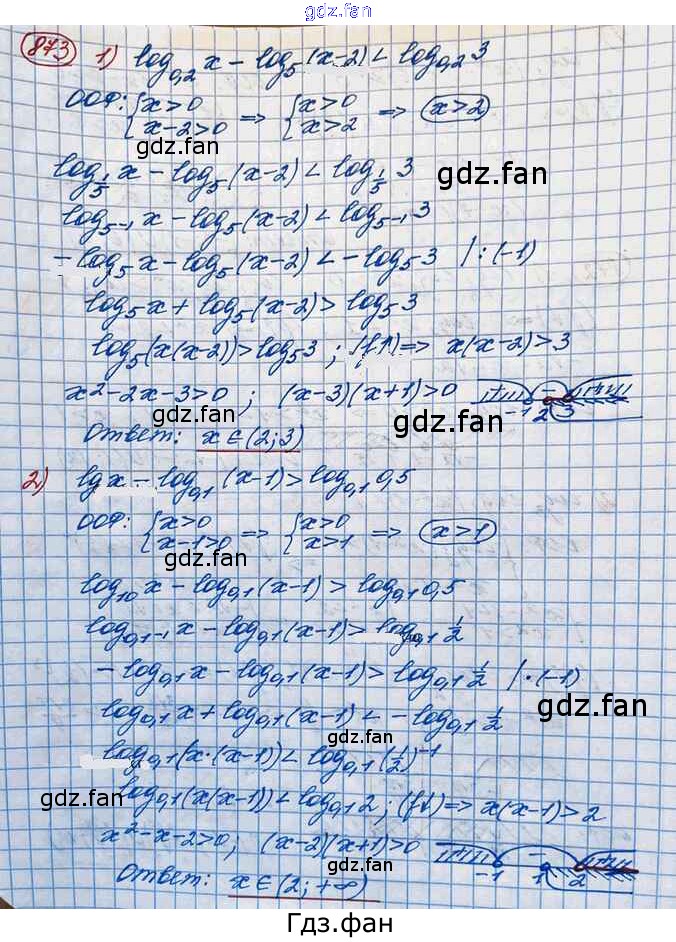 gdz.fan
873 1) log₀,₂ x – log₅ (x-2) < log₀,₂ 3
ООФ: { x>0 => { x>0 => x>2
x-2>0 x>2
gdz.fan
gdz.fan
log_{1/5} x – log₅ (x-2) < log_{1/5} 3
log_{5⁻¹} x – log₅ (x-2) < log_{5⁻¹} 3
– log₅ x – log₅ (x-2) < – log₅ 3 / : (-1)
log₅ x + log₅ (x-2) > log₅ 3
log₅ (x(x-2)) > log₅ 3 ; (f↑) => x(x-2) > 3
x² - 2x - 3 > 0 ; (x-3)(x+1) > 0 + – + -1 2 3
gdz.fan
gdz.fan
Ответ: x ∈ (2; 3)
2) lg x – log₀,₁ (x-1) > log₀,₁ 0,5
ООФ: { x>0 => { x>0 => x>1
x-1>0 x>1
gdz.fan
log₁₀ x – log₀,₁ (x-1) > log₀,₁ 0,5
log_{0,1⁻¹} x – log₀,₁ (x-1) > log₀,₁ 1/2
gdz.fan
– log₀,₁ x – log₀,₁ (x-1) > log₀,₁ 1/2 / · (-1)
gdz.fan
log₀,₁ x + log₀,₁ (x-1) < – log₀,₁ 1/2
gdz.fan
log₀,₁ (x·(x-1)) < log₀,₁ (1/2)⁻¹
gdz.fan
log₀,₁ (x(x-1)) < log₀,₁ 2 ; (f↓) => x(x-1) > 2
x² - x - 2 > 0 ; (x-2)(x+1) > 0 + – + -1 1 2
gdz.fan
gdz.fan
Ответ: x ∈ (2; +∞)
Гдз.фан